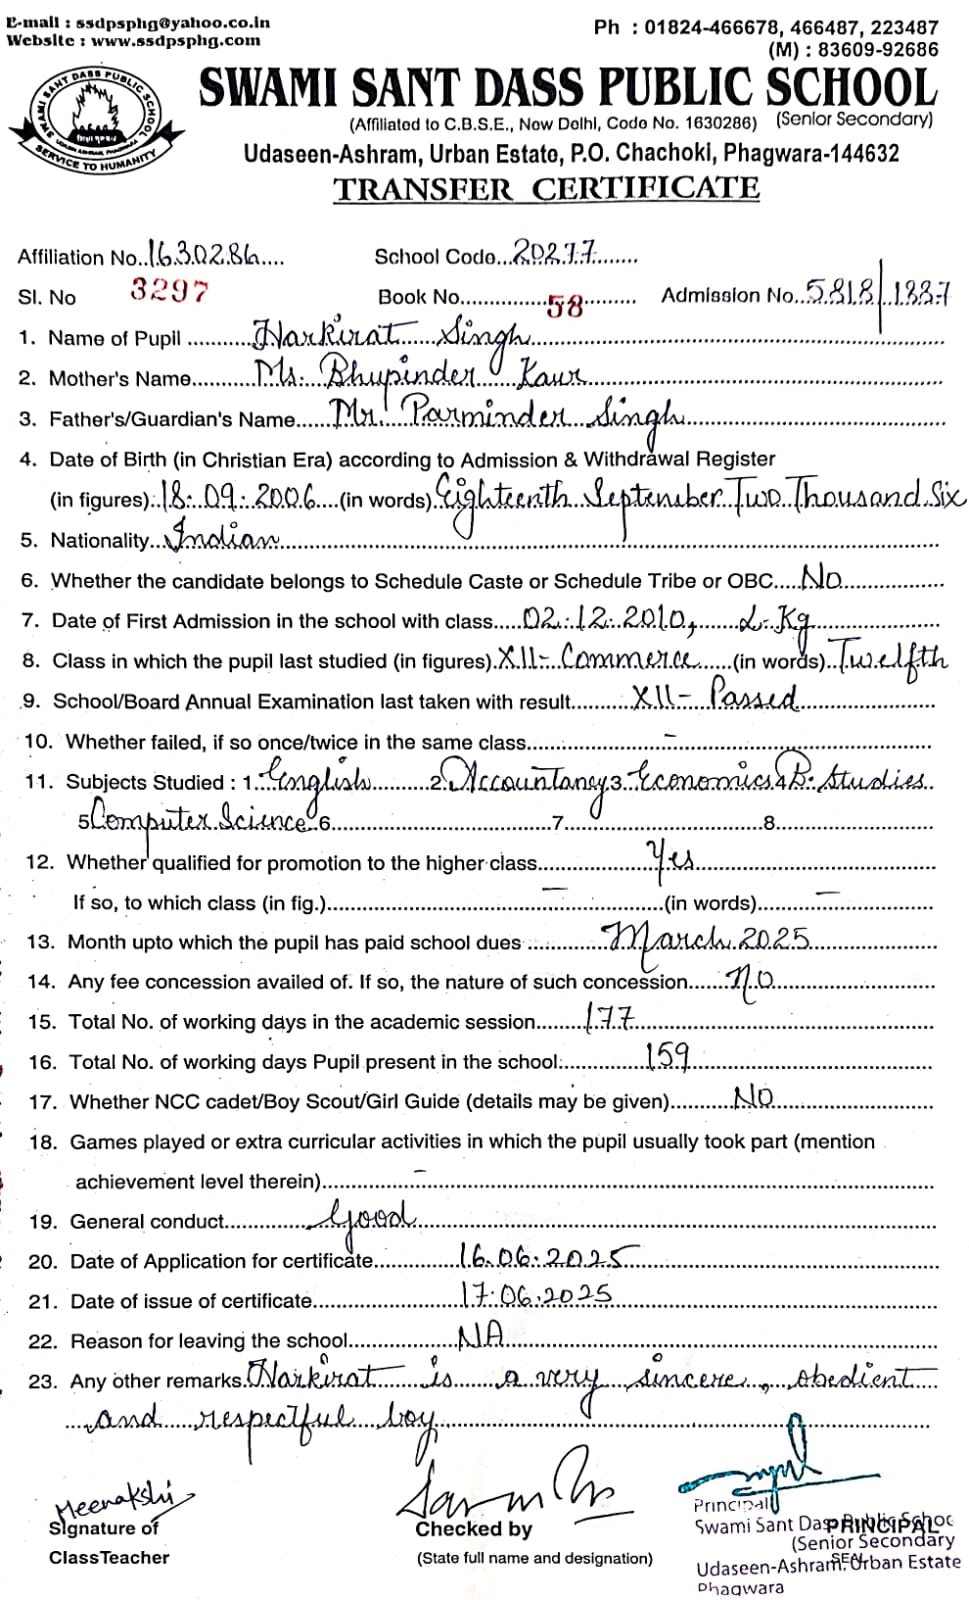 E-mail : ssdpsphg@yahoo.co.in
Website : www.ssdpsphg.com
Ph : 01824-466678, 466487, 223487
(M) : 83609-92686
SWAMI SANT DASS PUBLIC SCHOOL
SWAMI SANT DASS PUBLIC SCHOOL
SERVICE TO HUMANITY
(Affiliated to C.B.S.E., New Delhi, Code No. 1630286) (Senior Secondary)
Udaseen-Ashram, Urban Estate, P.O. Chachoki, Phagwara-144632
TRANSFER CERTIFICATE
Affiliation No..1630286.... School Code...20277........
Sl. No 3297 Book No...............58.......... Admission No..5818/1337
1. Name of Pupil ...........Harkirat Singh
2. Mother's Name..........Ms. Bhupinder Kaur
3. Father's/Guardian's Name......Mr. Parminder Singh
4. Date of Birth (in Christian Era) according to Admission & Withdrawal Register
(in figures).18.09.2006....(in words) Eighteenth September Two Thousand Six
5. Nationality...Indian
6. Whether the candidate belongs to Schedule Caste or Schedule Tribe or OBC.....No
7. Date of First Admission in the school with class.....02.12.2010, L.Kg
8. Class in which the pupil last studied (in figures).XII- Commerce......(in words)..Twelfth
9. School/Board Annual Examination last taken with result..........XII- Passed
10. Whether failed, if so once/twice in the same class.............. –
11. Subjects Studied : 1. English 2. Accountancy 3. Economics 4. B. Studies
5 Computer Science 6..............7..............8..............
12. Whether qualified for promotion to the higher class..............Yes
If so, to which class (in fig.)..............—..............(in words)......—......
13. Month upto which the pupil has paid school dues ............March 2025
14. Any fee concession availed of. If so, the nature of such concession.......No
15. Total No. of working days in the academic session........177
16. Total No. of working days Pupil present in the school..............159
17. Whether NCC cadet/Boy Scout/Girl Guide (details may be given)..........No
18. Games played or extra curricular activities in which the pupil usually took part (mention
achievement level therein)..............–..............
19. General conduct..............Good
20. Date of Application for certificate..............16.06.2025
21. Date of issue of certificate..............17.06.2025
22. Reason for leaving the school..............NA
23. Any other remarks. Harkirat is a very sincere, obedient
and respectful boy
Meenakshi
Signature of
ClassTeacher
Checked by
(State full name and designation)
Principal
Swami Sant Dass Public School
PRINCIPAL
(Senior Secondary
SEAL
Udaseen-Ashram. Urban Estate
Phagwara